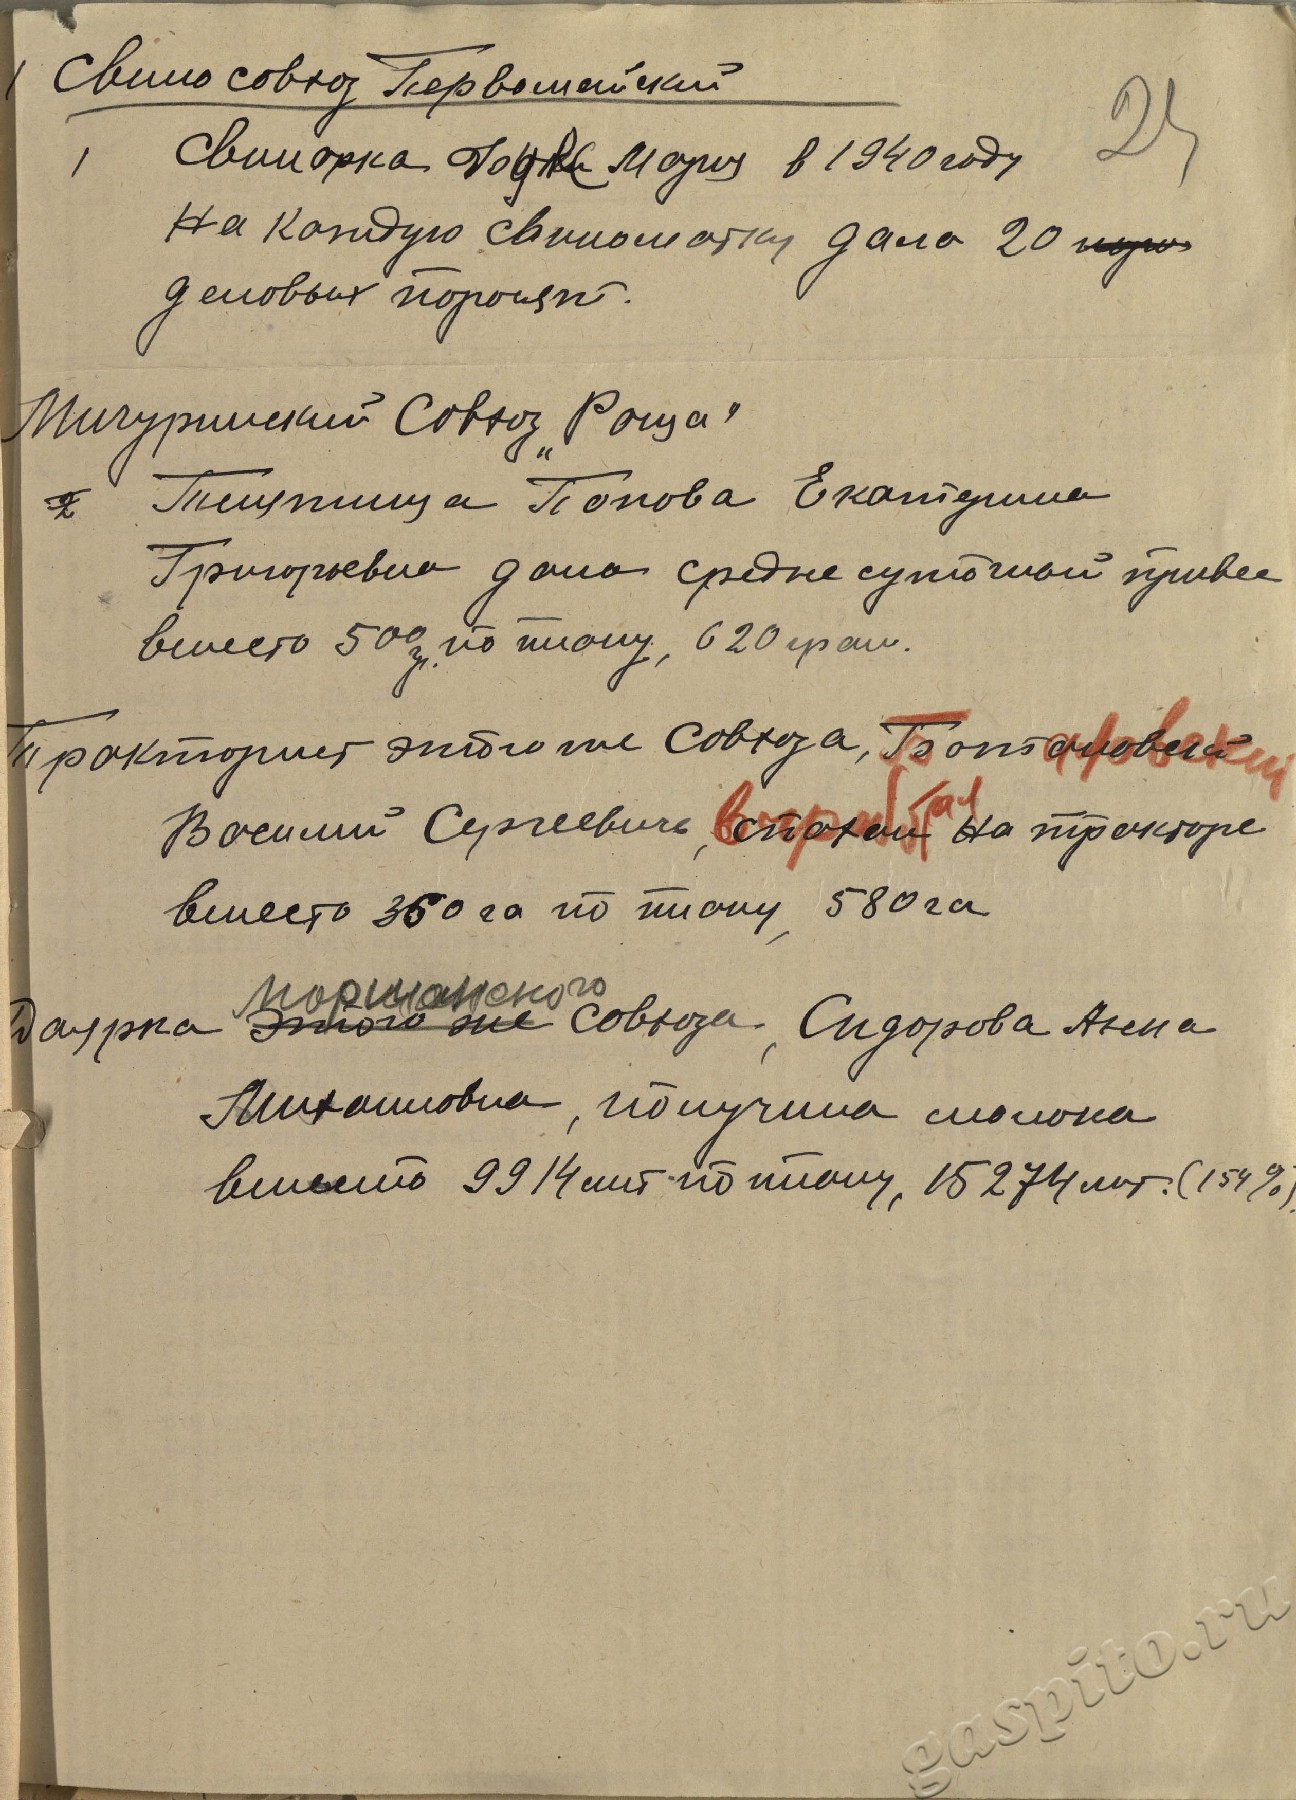 1 Свиносовхоз Первомайский
24
1 Свинарка Мария в 1940 году
На каждую свиноматку дала 20 поро
деловых поросят.
Мичуринский Совхоз „Роща"
2 Телятница Попова Екатерина
Григорьевна дала средне суточный привес
вместо 500 гр. по плану, 620 грам.
Тракторист этого же Совхоза,
Василий Сергеевич, выработал вспахал на тракторе
вместо 360 га по плану, 580 га
Моршанского
Доярка этого же совхоза, Сидорова Анна
Михайловна, получила молока
вместо 9914 лит по плану, 15274 лит. (154%).
gaspito.ru